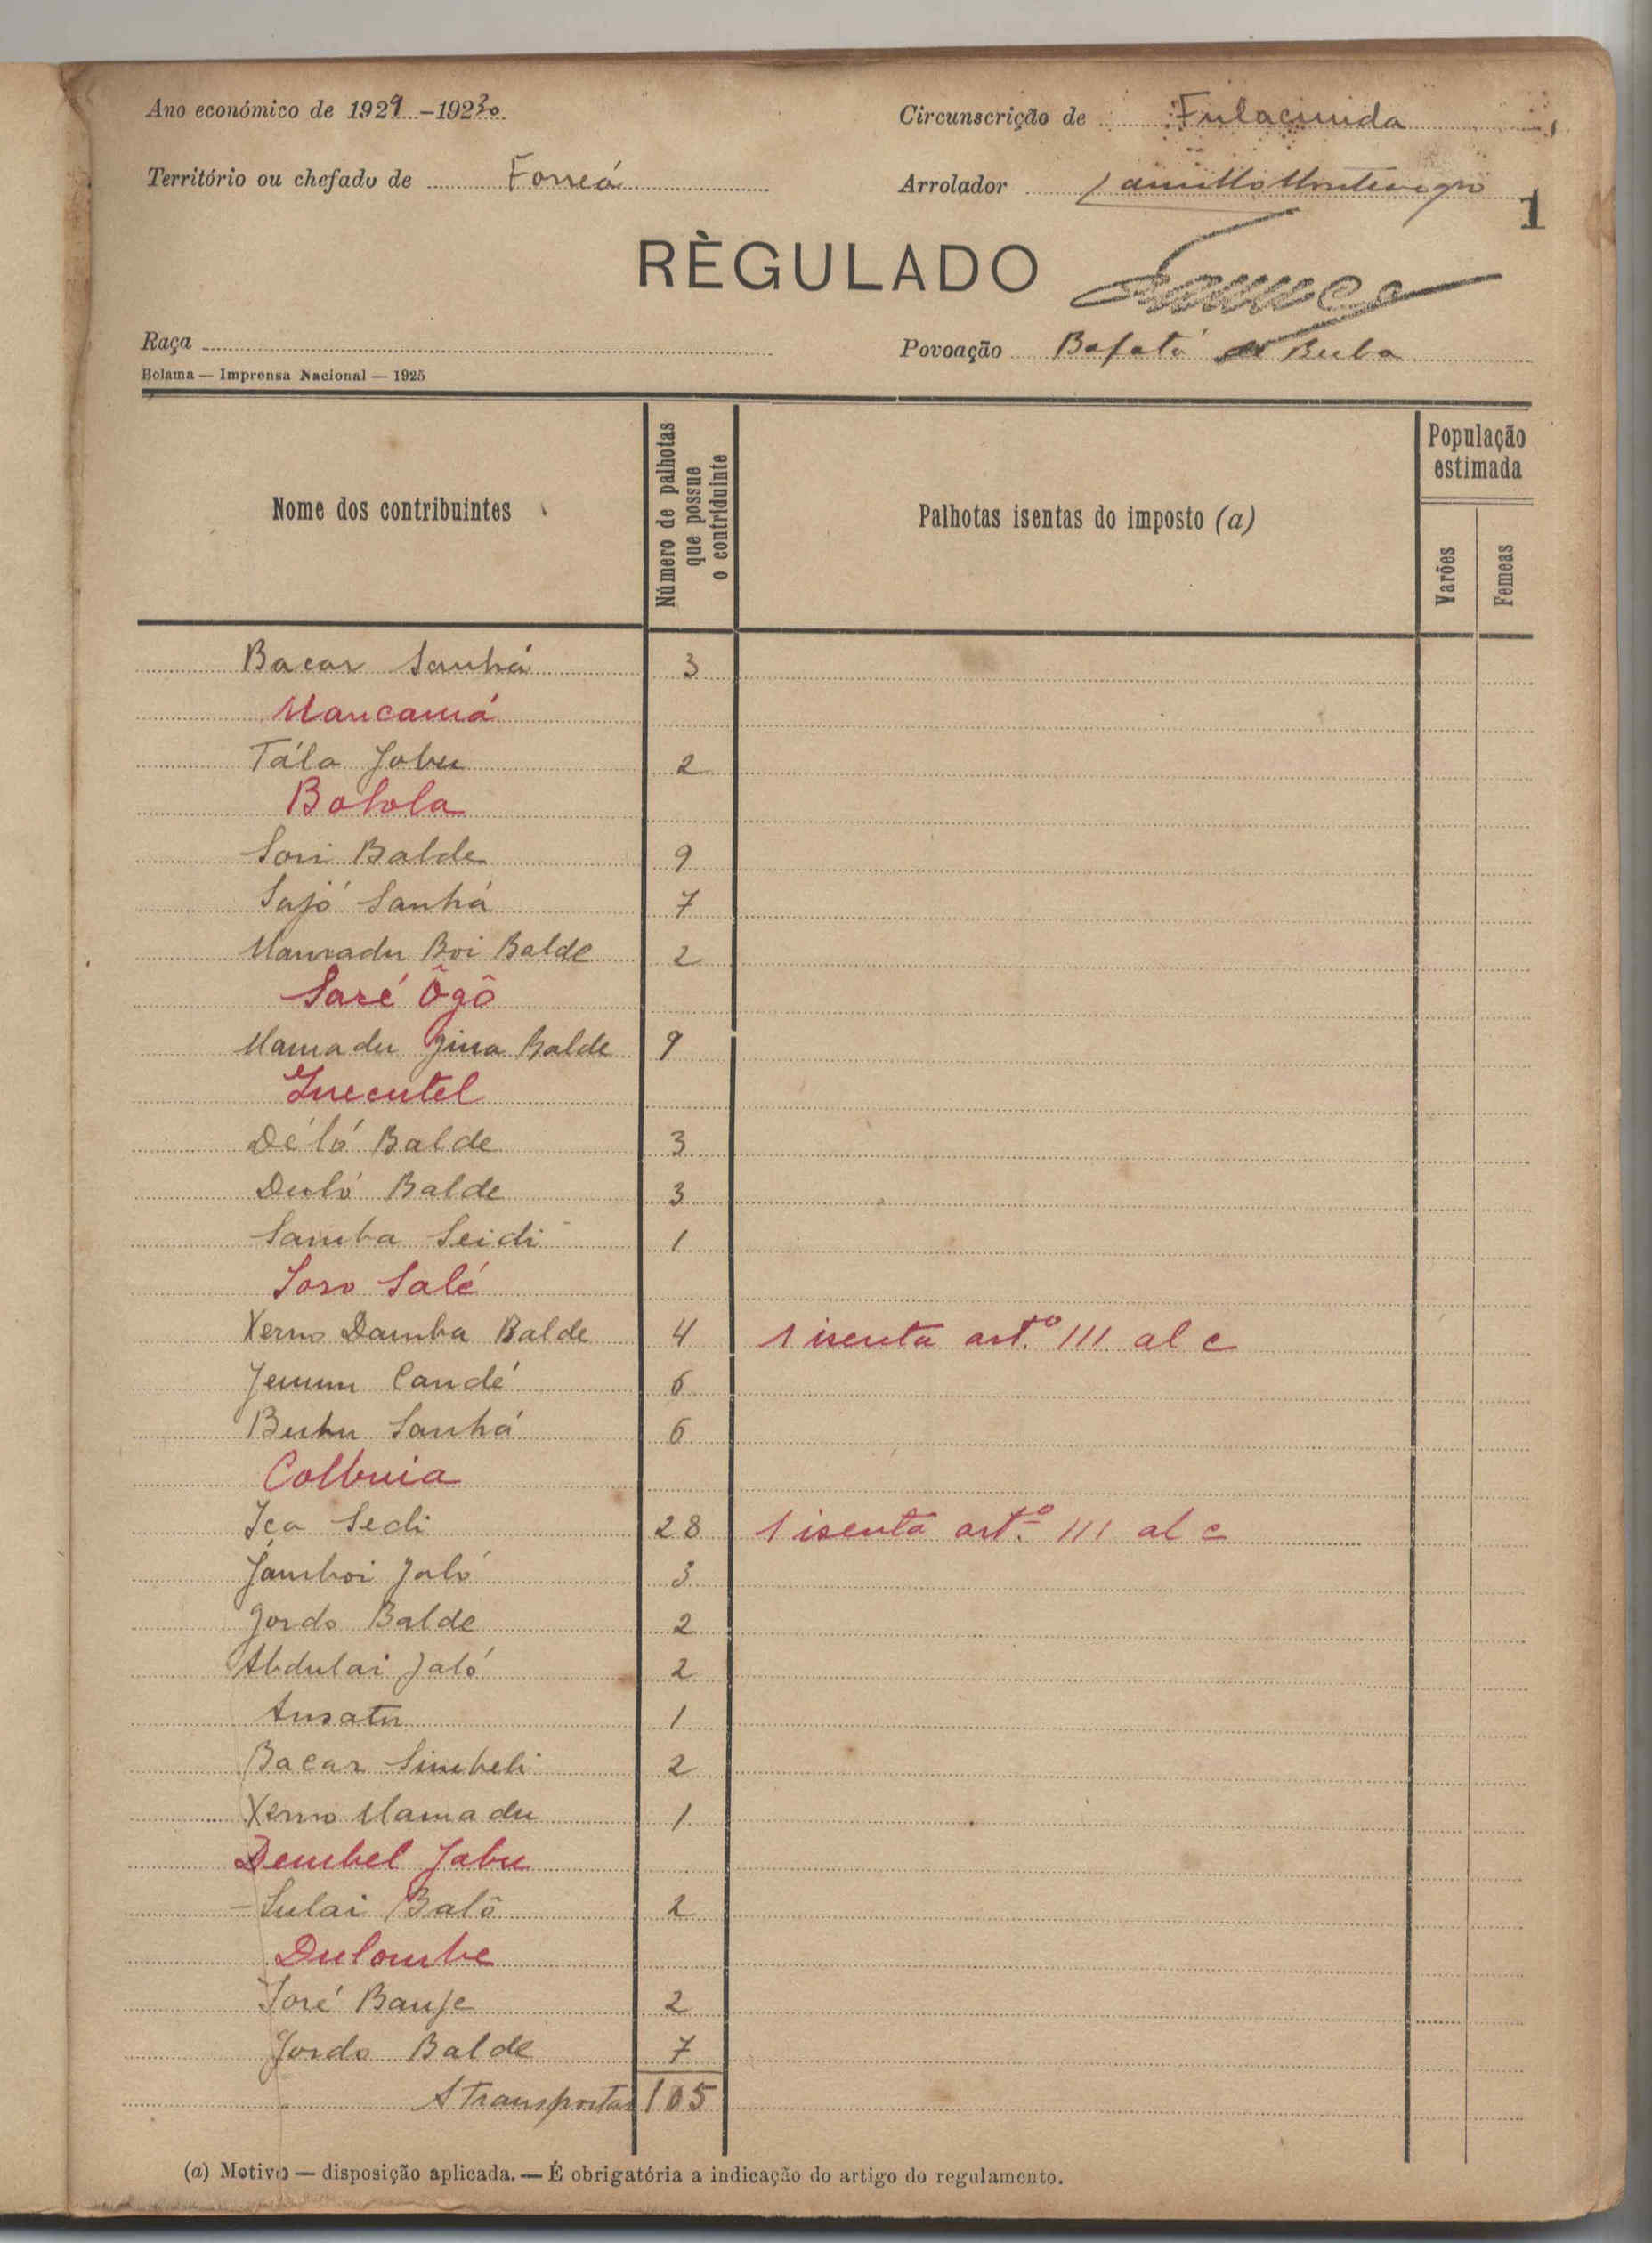 Ano económico de 1929-1930
Circunscrição de Fulacunda
Território ou chefado de Forreá
Arrolador Camillo Montenegro
1
RÈGULADO
Raça
Povoação Bafatá de Buba
Bolama — Imprensa Nacional — 1925
Nome dos contribuintes
Número de palhotas que possue o contriduinte
Palhotas isentas do imposto (a)
População estimada
Varões
Femeas
Bacar Sanhá 3
Mancamá
Tála Jobu 2
Bolola
Sori Balde 9
Sajó Sanhá 7
Mamadu Boi Balde 2
Saré Ôgô
Mamadu Gina Balde 9
Guecutel
Déló Balde 3
Duló Balde 3
Samba Seidi 1
Soro Salé
Xerno Damba Balde 4 1 isenta art.º 111 al c
Jemum Candé 6
Bubu Sanhá 6
Colbuia
Iça Sedi 28 1 isenta art.º 111 al c
Jamboi Jaló 3
Jordo Balde 2
Abdulai Jaló 2
Ansatu 1
Bacar Simbeli 2
Xerno Mamadu 1
Dembel Jabu
Sulai Balô 2
Dulombe
Soré Banje 2
Jordo Balde 7
A transportar 105
(a) Motivo — disposição aplicada. — É obrigatória a indicação do artigo do regulamento.